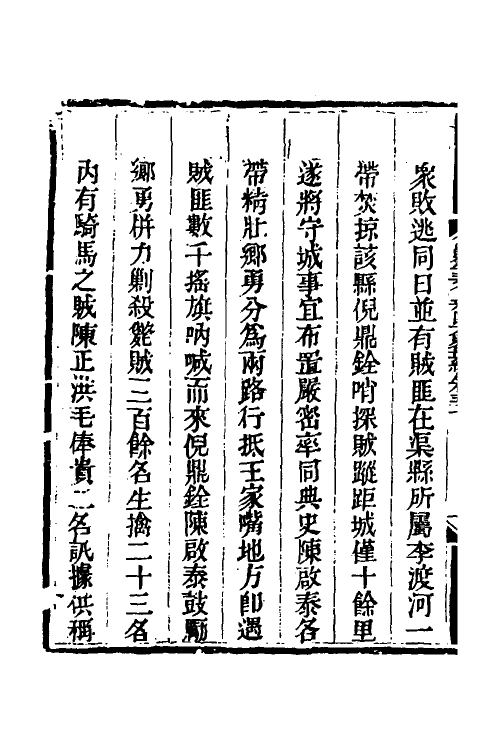 衆敗逃同日並有賊匪在渠縣所屬李渡河一
帶焚掠該縣倪鼎銓哨探賊蹤距城僅十餘里
遂將守城事宜布置嚴密率同典史陳啟泰各
帶精壯鄉勇分爲兩路行抵王家嘴地方卽遇
賊匪數千搖旗吶喊而來倪鼎銓陳啟泰鼓勵
鄉勇併力剿殺斃賊三百餘名生擒二十三名
內有騎馬之賊陳正洪毛俸貴二名訊據供稱